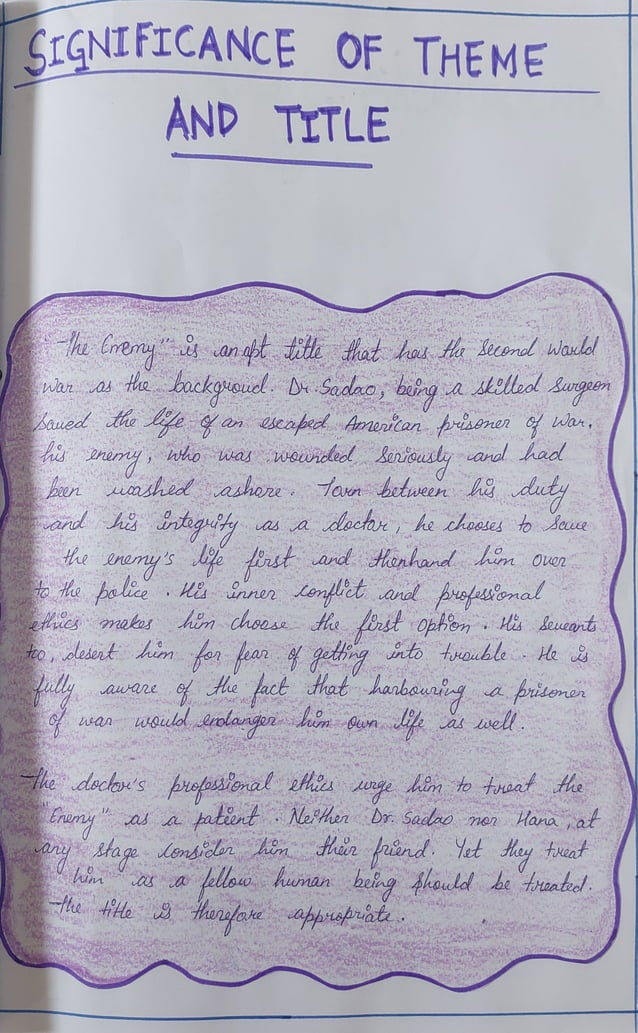 SIGNIFICANCE OF THEME
AND TITLE
"The Enemy" is an apt title that has the second world
war as the backgroud. Dr. Sadao, being a skilled surgeon
saved the life of an escaped American prisoner of war,
his enemy, who was wounded seriously and had
been washed ashore. Torn between his duty
and his integrity as a doctor, he chooses to save
the enemy's life first and thenhand him over
to the police. His inner conflict and professional
ethics makes him choose the first option. His sevearts
too, desert him for fear of getting into trouble. He is
fully aware of the fact that harbouring a prisoner
of war would endanger him own life as well.
The doctor's professional ethics urge him to treat the
"Enemy" as a patient. Neither Dr. Sadao nor Hana, at
any stage consider him their friend. Yet they treat
him as a fellow human being should be treated.
The title is therefore appropriate.